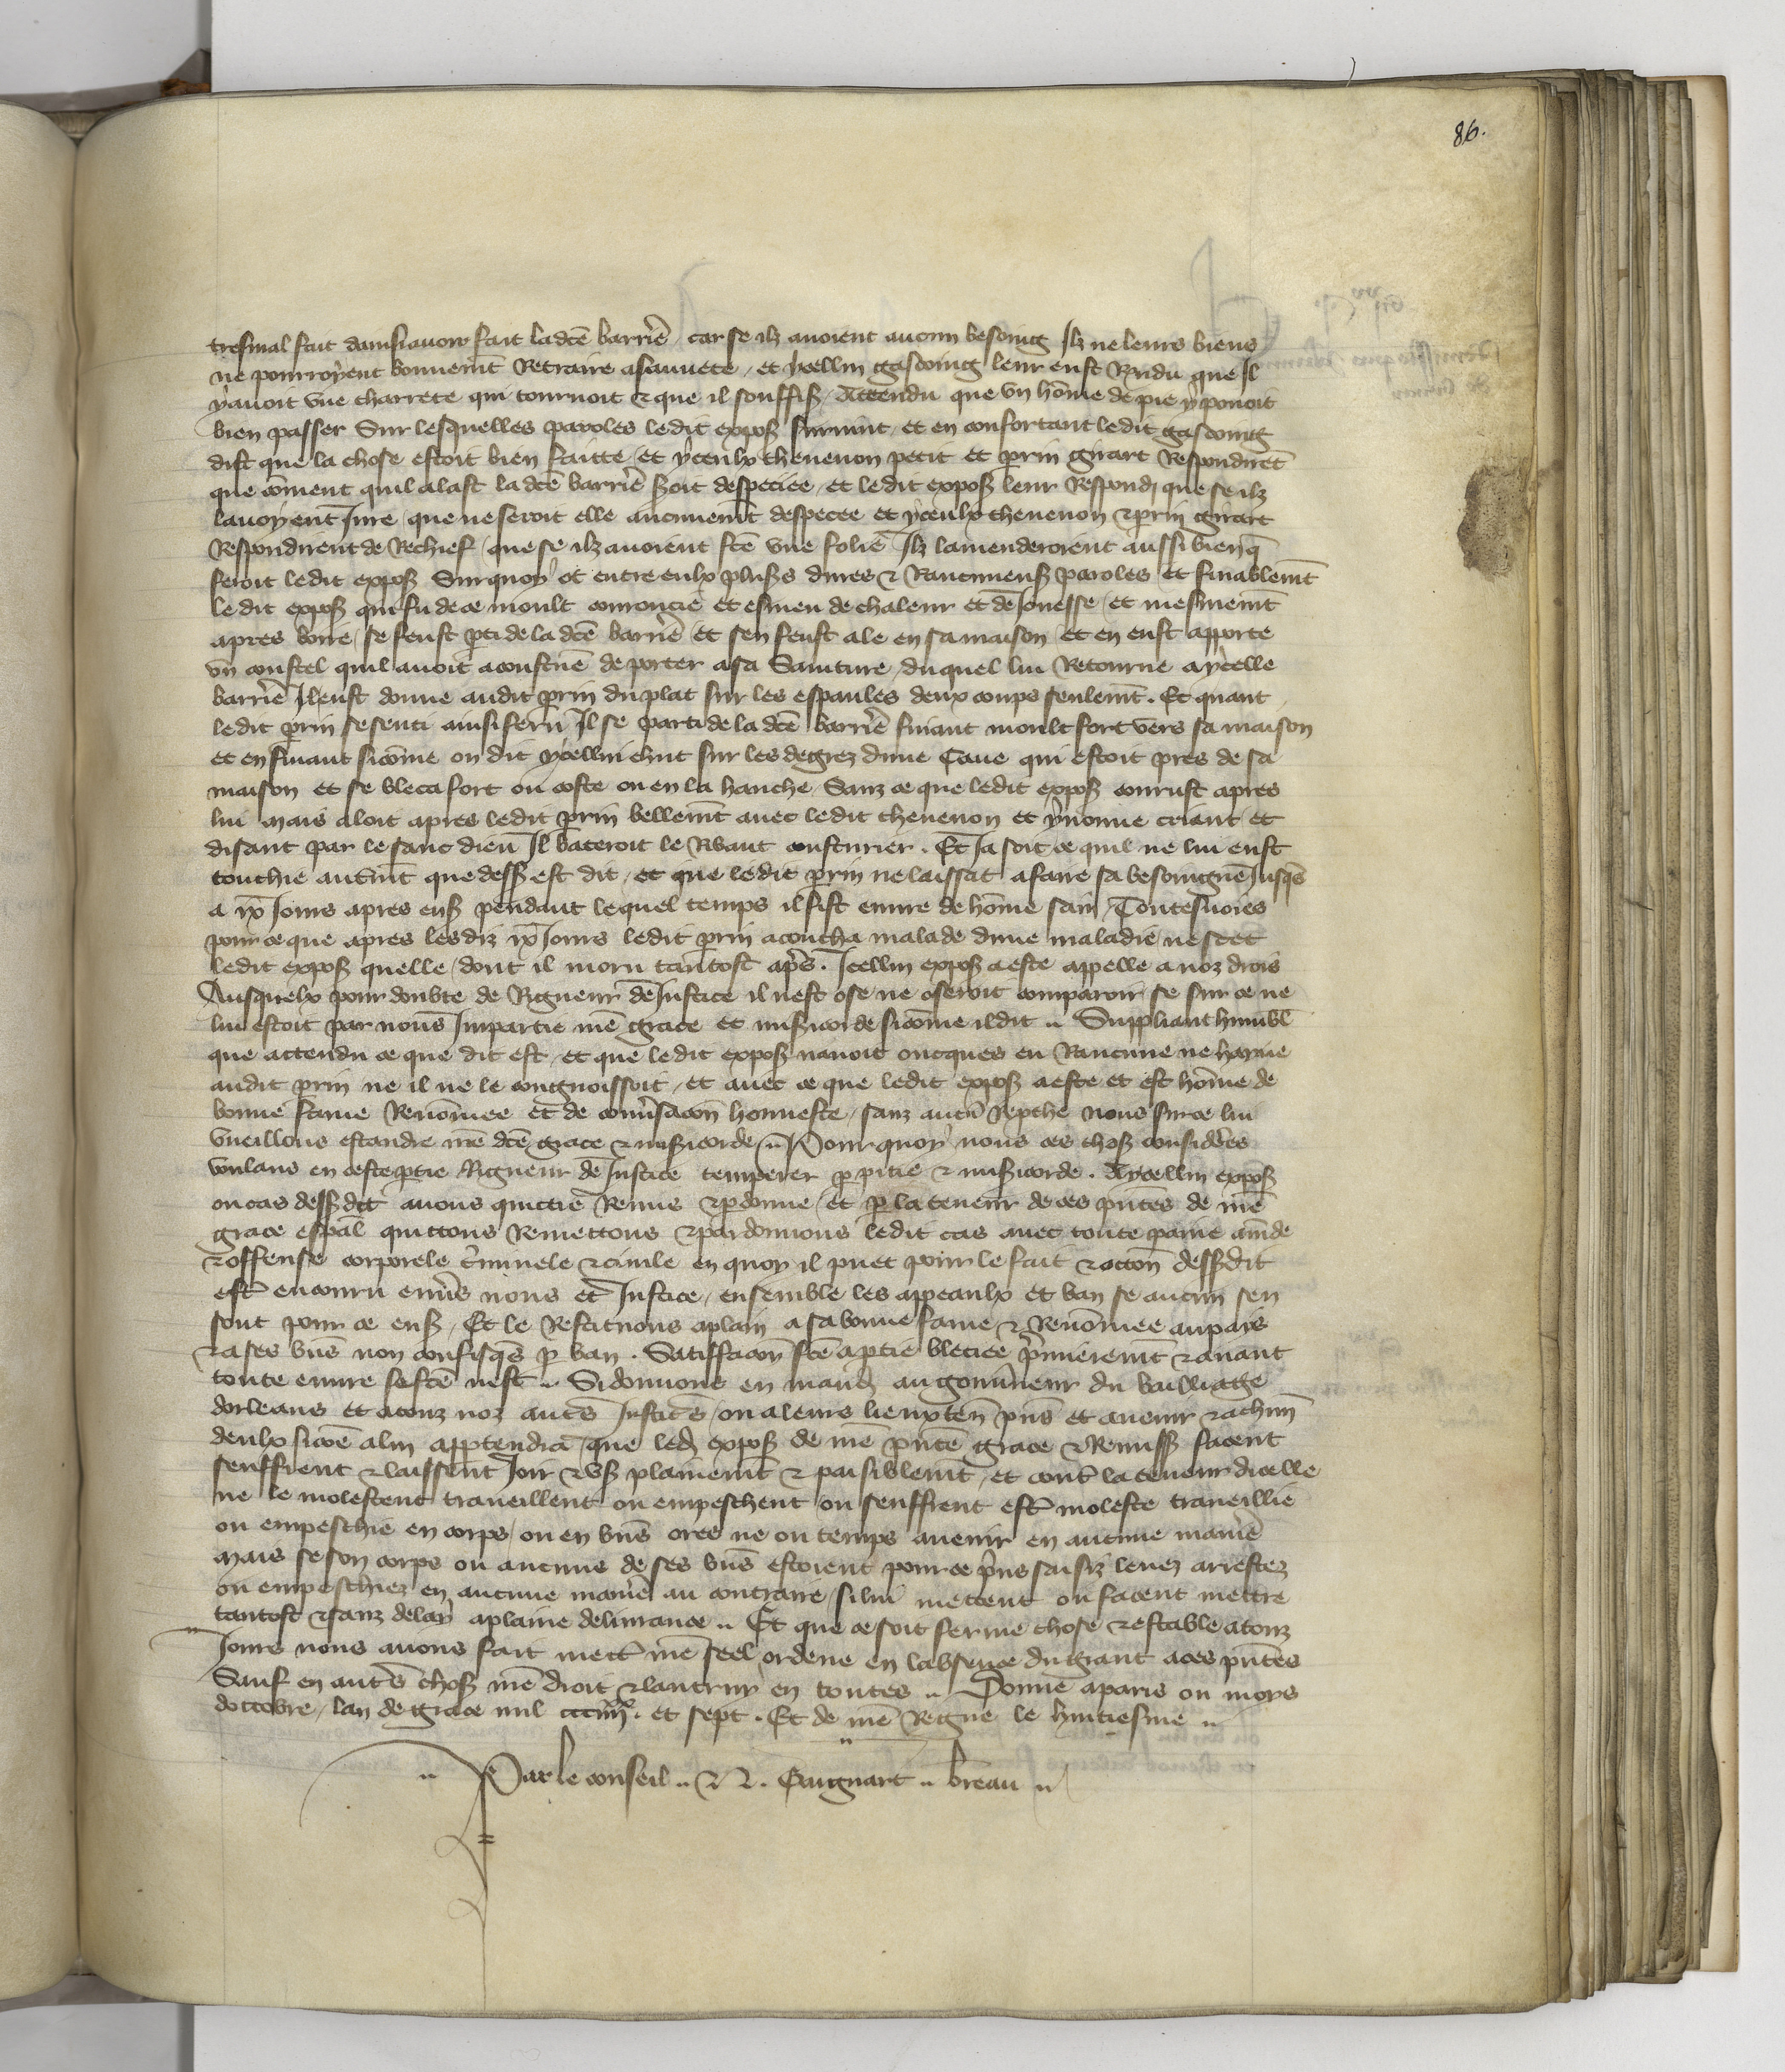 86.
tresmal fait dainsi avoir fait ladcē barrie͂ car se ilz avoient aucun besoing Ilz ne leurs biens
ne pourroyent bonnemt̄ Retraire a sauvete, et ycellui gascoing leur eust Rndu que Il
y avoit une charrete qui tournoit & que il souffiß, Attendu que un hōme de pie y povoit
bien passer Sur lesquelles paroles ledit expoß survint, et en confortant ledit gascoing
dist que la chose estoit bien faitte, et yceulx thevenon petit et prin girart Respondirēt
que cōment quil alast la dcē barrie͂ seroit despeciee, et ledit expoß leur Respondi que se ilz
lavoyent Jure, que ne seroit elle aucunemt̄ despecee et yceulx thevenon & prin girart
Respondirent de Rechief, que se ilz avoient fcē une folie Ilz lamenderoient aussi bien q̄
feroit ledit expoß Sur quoy ot entre eulx plußs dures & Rancuneuß paroles et finablemt̄
ledit expoß qui fu de ce moult courroucie et esmeu de chaleur et de Jonesse, et mesmemt̄
apres boire, se feust pti de la dcē barrie͂, et sen feust ale en sa maison, et en eust apporte
un coustel quil avoit acoustūe de porter a sa Sainture, duquel lui Retourne a ycelle
barrie͂ Il eust donne audit prin du plat sur les espaules deux coups seulemt̄. Et quant
ledit prin se senti ainsi feru Il se parti de la dcē barrie͂ fuiant moult fort vers sa maison
et en fuiant sicōme on dit ycellui cheut sur les degrez dune Cave qui estoit pres de sa
maison et se bleca fort ou coste ou en la hanche, Sanz ce que ledit expoß courust apres
lui mais aloit apres ledit prin bellemt̄ avec ledit thevenon et yvonne criant et
disant par le sanc dieu Il bateroit le Rbaut cousturier. Et Ja soit ce quil ne lui eust
touchie autrmt̄ que desß est dit, et que ledit prin ne laissat a faire sa besoingne Jusqs̄
a ix Jours apres enß pendant lequel temps il fist euvre de hōme sain, Toutesvoies
pour ce que apres lesdiz ix Jours ledit prin acoucha malade dune maladie, ne scet
ledit expoß quelle, dont il moru tantost aps̄. Icellui expoß a este appelle a noz drois
Ausquelx pour doubte de Rigueur de Justice il nest ose ne oseroit comparoir se sur ce ne
lui estoit par nous Impartie nrē grace et mißicorde sicōme il dit .. Suppliant humbl̄
que attendu ce que dit est, et que ledit expoß navoit oncques eu Rancune ne hayne
audit prin ne il ne le congnoissoit, et avec ce que ledit expoß a este et est hōme de
bonne fame Renōmee et de conv̄sacōn honneste, sanz autr̄ repche nous sur ce lui
vueillons estandre nrē dcē grace & mißicorde .. Pour quoy nous ces choß considērs
voulans en ceste ptie Rigueur de Justice temperer p pitie & mißicorde. A ycellui expoß
ou cas desß dit avons quictie Remis & pdonne, et p la teneur de ces pn̄tes de nrē
grace espāl quictons Remettons & pardonnons ledit cas avec toute paine am̄de
& offense corporele c̄iminele & civile en quoy il puet pour le fait & occōn desßdit
estr̄ encouru env̄s nous et Justice, ensemble les appeaulx et ban se aucun sen
sont pour ce enß, Et le Restituons a plain a sa bonne fame & Renōmee au pays
& a ses bn̄s non confisqs̄ p ban. Satiffacōn fcē a ptie bleciee p̄mieremt̄ & avant
toute euvre se fcē nest .. Si donnons en mandz au gouv̄neur du bailliage
dorleans et a touz noz autr̄s Justicrs̄, ou a leurs lieuxten̄ pn̄s et avenir & a chun̄
deulx sicoē a lui apptendra, que ledz expoß de nrē pn̄te grace & Remisß facent
seuffrent & laissent Joir & uß plainemt̄ & paisiblemt̄, et contr̄ la teneur dicelle
ne le molestent traveillent ou empeschent ou seuffrent estr̄ moleste traveillie
ou empeschie en corps, ou en bn̄s ores ne ou temps avenir en aucune manie͂
Mais se son corps ou aucuns de ses bn̄s estoient pour ce p̄ns saisiz levez arrestez
ou empeschiez en aucune manie͂ au contraire, si lui mettent ou facent mettre
tantost & sanz delay a plaine delivrance .. Et que ce soit ferme chose & estable a touz
Jours nous avons fait mectr̄ nrē seel ordene en labsence du grant a ces pn̄tes
Sauf en autr̄s choß nrē droit & lautruy en toutes .. Donne a paris ou moys
doctobre, lan de grace mil ccc iiiixx. et sept. Et de nrē Regne le huitiesme ..
.. Par le conseil .. & N. Gaignart .. breau ..